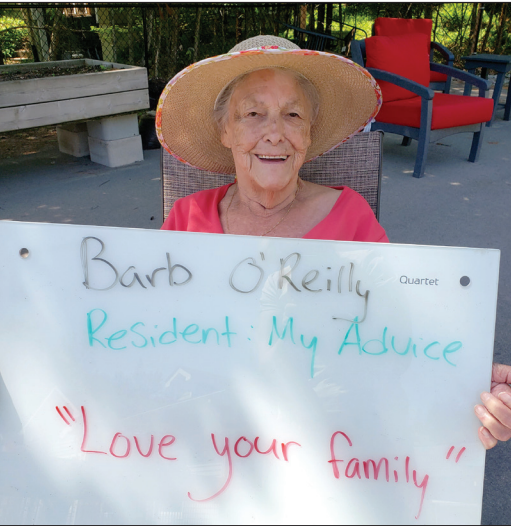 Barb O'Reilly Quartet
Resident: My Advice
"Love your family"